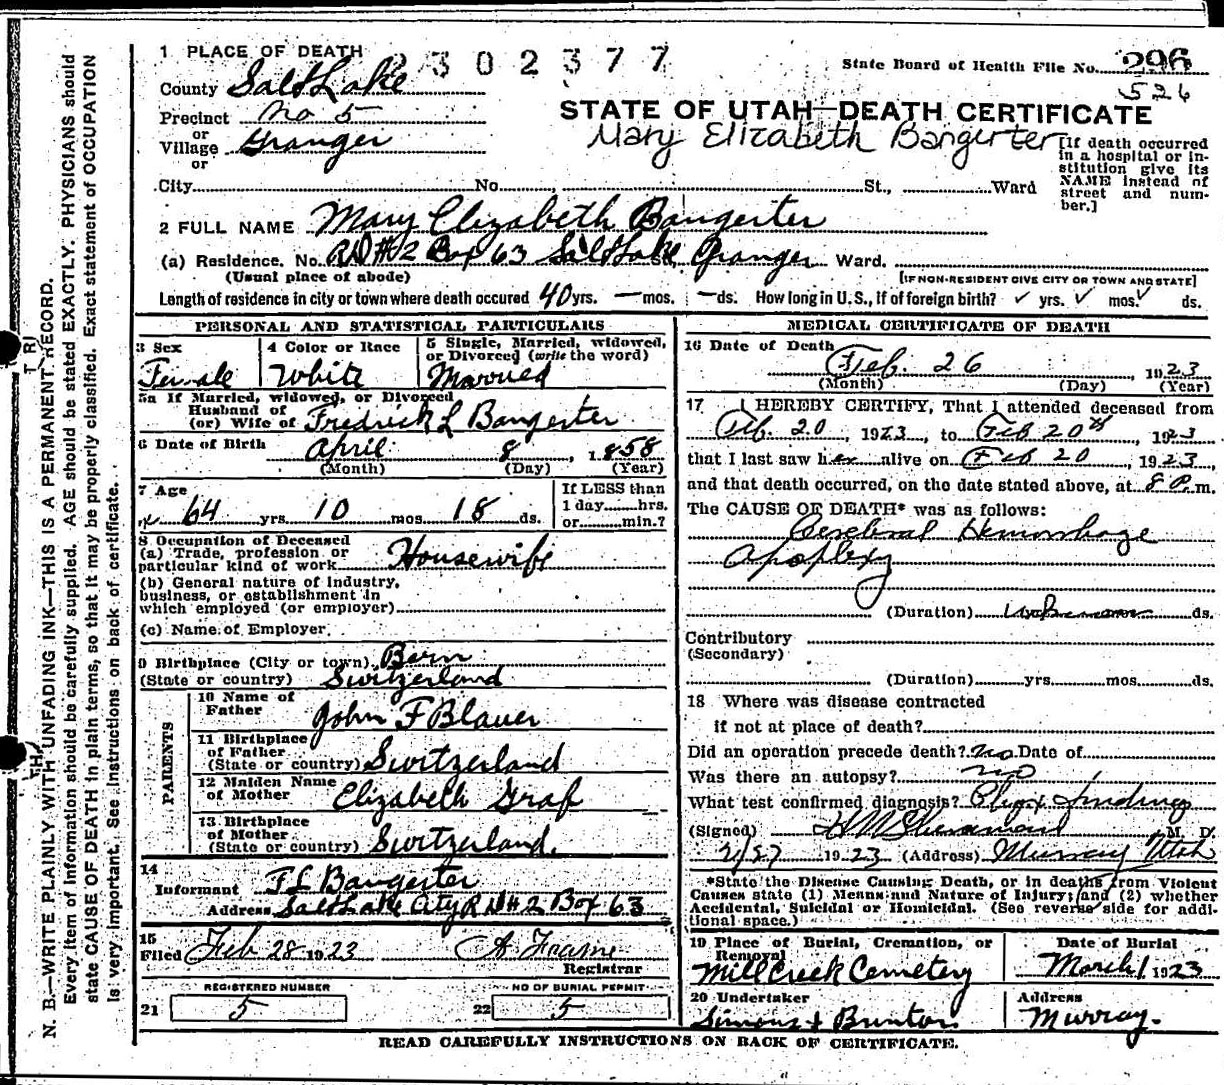 1 PLACE OF DEATH
2302377
State Board of Health File No. 296
526
County Salt Lake
STATE OF UTAH—DEATH CERTIFICATE
Precinct No 5
Mary Elizabeth Bangerter
or
Village Granger
or
City No. , St., Ward
[If death occurred
in a hospital or in-
stitution give its
NAME instead of
street and num-
ber.]
2 FULL NAME Mary Elizabeth Bangerter
(a) Residence. No. RD #2 Box 63 Salt Lake St., Granger Ward.
(Usual place of abode) [IF NON-RESIDENT GIVE CITY OR TOWN AND STATE]
Length of residence in city or town where death occured 40 yrs. — mos. — ds. How long in U.S., if of foreign birth? ✓ yrs. ✓ mos. ✓ ds.
PERSONAL AND STATISTICAL PARTICULARS
3 Sex
Female
4 Color or Race
White
5 Single, Married, widowed,
or Divorced (write the word)
Married
5a If Married, widowed, or Divorced
Husband of
(or) Wife of Fredrick L Bangerter
6 Date of Birth April 8, 1858
(Month) (Day) (Year)
7 Age
64 yrs. 10 mos. 18 ds.
If LESS than
1 day......hrs.
or......min.?
8 Occupation of Deceased
(a) Trade, profession or
particular kind of work Housewife
(b) General nature of industry,
business, or establishment in
which employed (or employer)
(c) Name of Employer
9 Birthplace (City or town) Bern
(State or country) Switzerland
PARENTS
10 Name of
Father John F Blauer
11 Birthplace
of Father
(State or country) Switzerland
12 Maiden Name
of Mother Elizabeth Graf
13 Birthplace
of Mother
(State or country) Switzerland.
14
Informant F L Bangerter
Address Salt Lake City R D #2 Box 63
15
Filed Feb 28 1923 A Frame
Registrar
REGISTERED NUMBER
21 5
NO OF BURIAL PERMIT
22 5
MEDICAL CERTIFICATE OF DEATH
16 Date of Death
Feb. 26 1923
(Month) (Day) (Year)
17 I HEREBY CERTIFY, That I attended deceased from
Feb. 20, 1923, to Feb 20th, 1923
that I last saw her alive on Feb 20, 1923,
and that death occurred, on the date stated above, at 8 P. m.
The CAUSE OF DEATH* was as follows:
Cerebral Hemorrhage
Apoplexy
(Duration) Unknown ds.
Contributory
(Secondary)
(Duration) yrs. mos. ds.
18 Where was disease contracted
if not at place of death?
Did an operation precede death? no Date of
Was there an autopsy? no
What test confirmed diagnosis? Phys findings
(Signed) M. D.
2/27 1923 (Address) Murray Utah
*State the Disease Causing Death, or in deaths from Violent
Causes state (1) Means and Nature of Injury; and (2) whether
Accidental, Suicidal or Homicidal. (See reverse side for addi-
tional space.)
19 Place of Burial, Cremation, or
Removal
Mill Creek Cemetery
Date of Burial
March 1 1923
20 Undertaker
Simons & Brinton
Address
Murray.
READ CAREFULLY INSTRUCTIONS ON BACK OF CERTIFICATE.
N. B.—WRITE PLAINLY WITH UNFADING INK—THIS IS A PERMANENT RECORD.
Every item of information should be carefully supplied. AGE should be stated EXACTLY. PHYSICIANS should
state CAUSE OF DEATH in plain terms, so that it may be properly classified. Exact statement of OCCUPATION
is very important. See instructions on back of certificate.